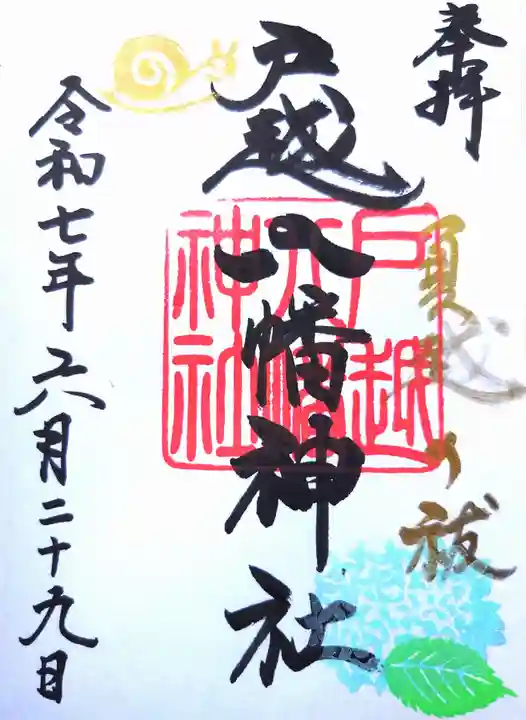 奉拝
夏越の祓
戸越八幡神社
戸越
八幡
神社
令和七年六月二十九日